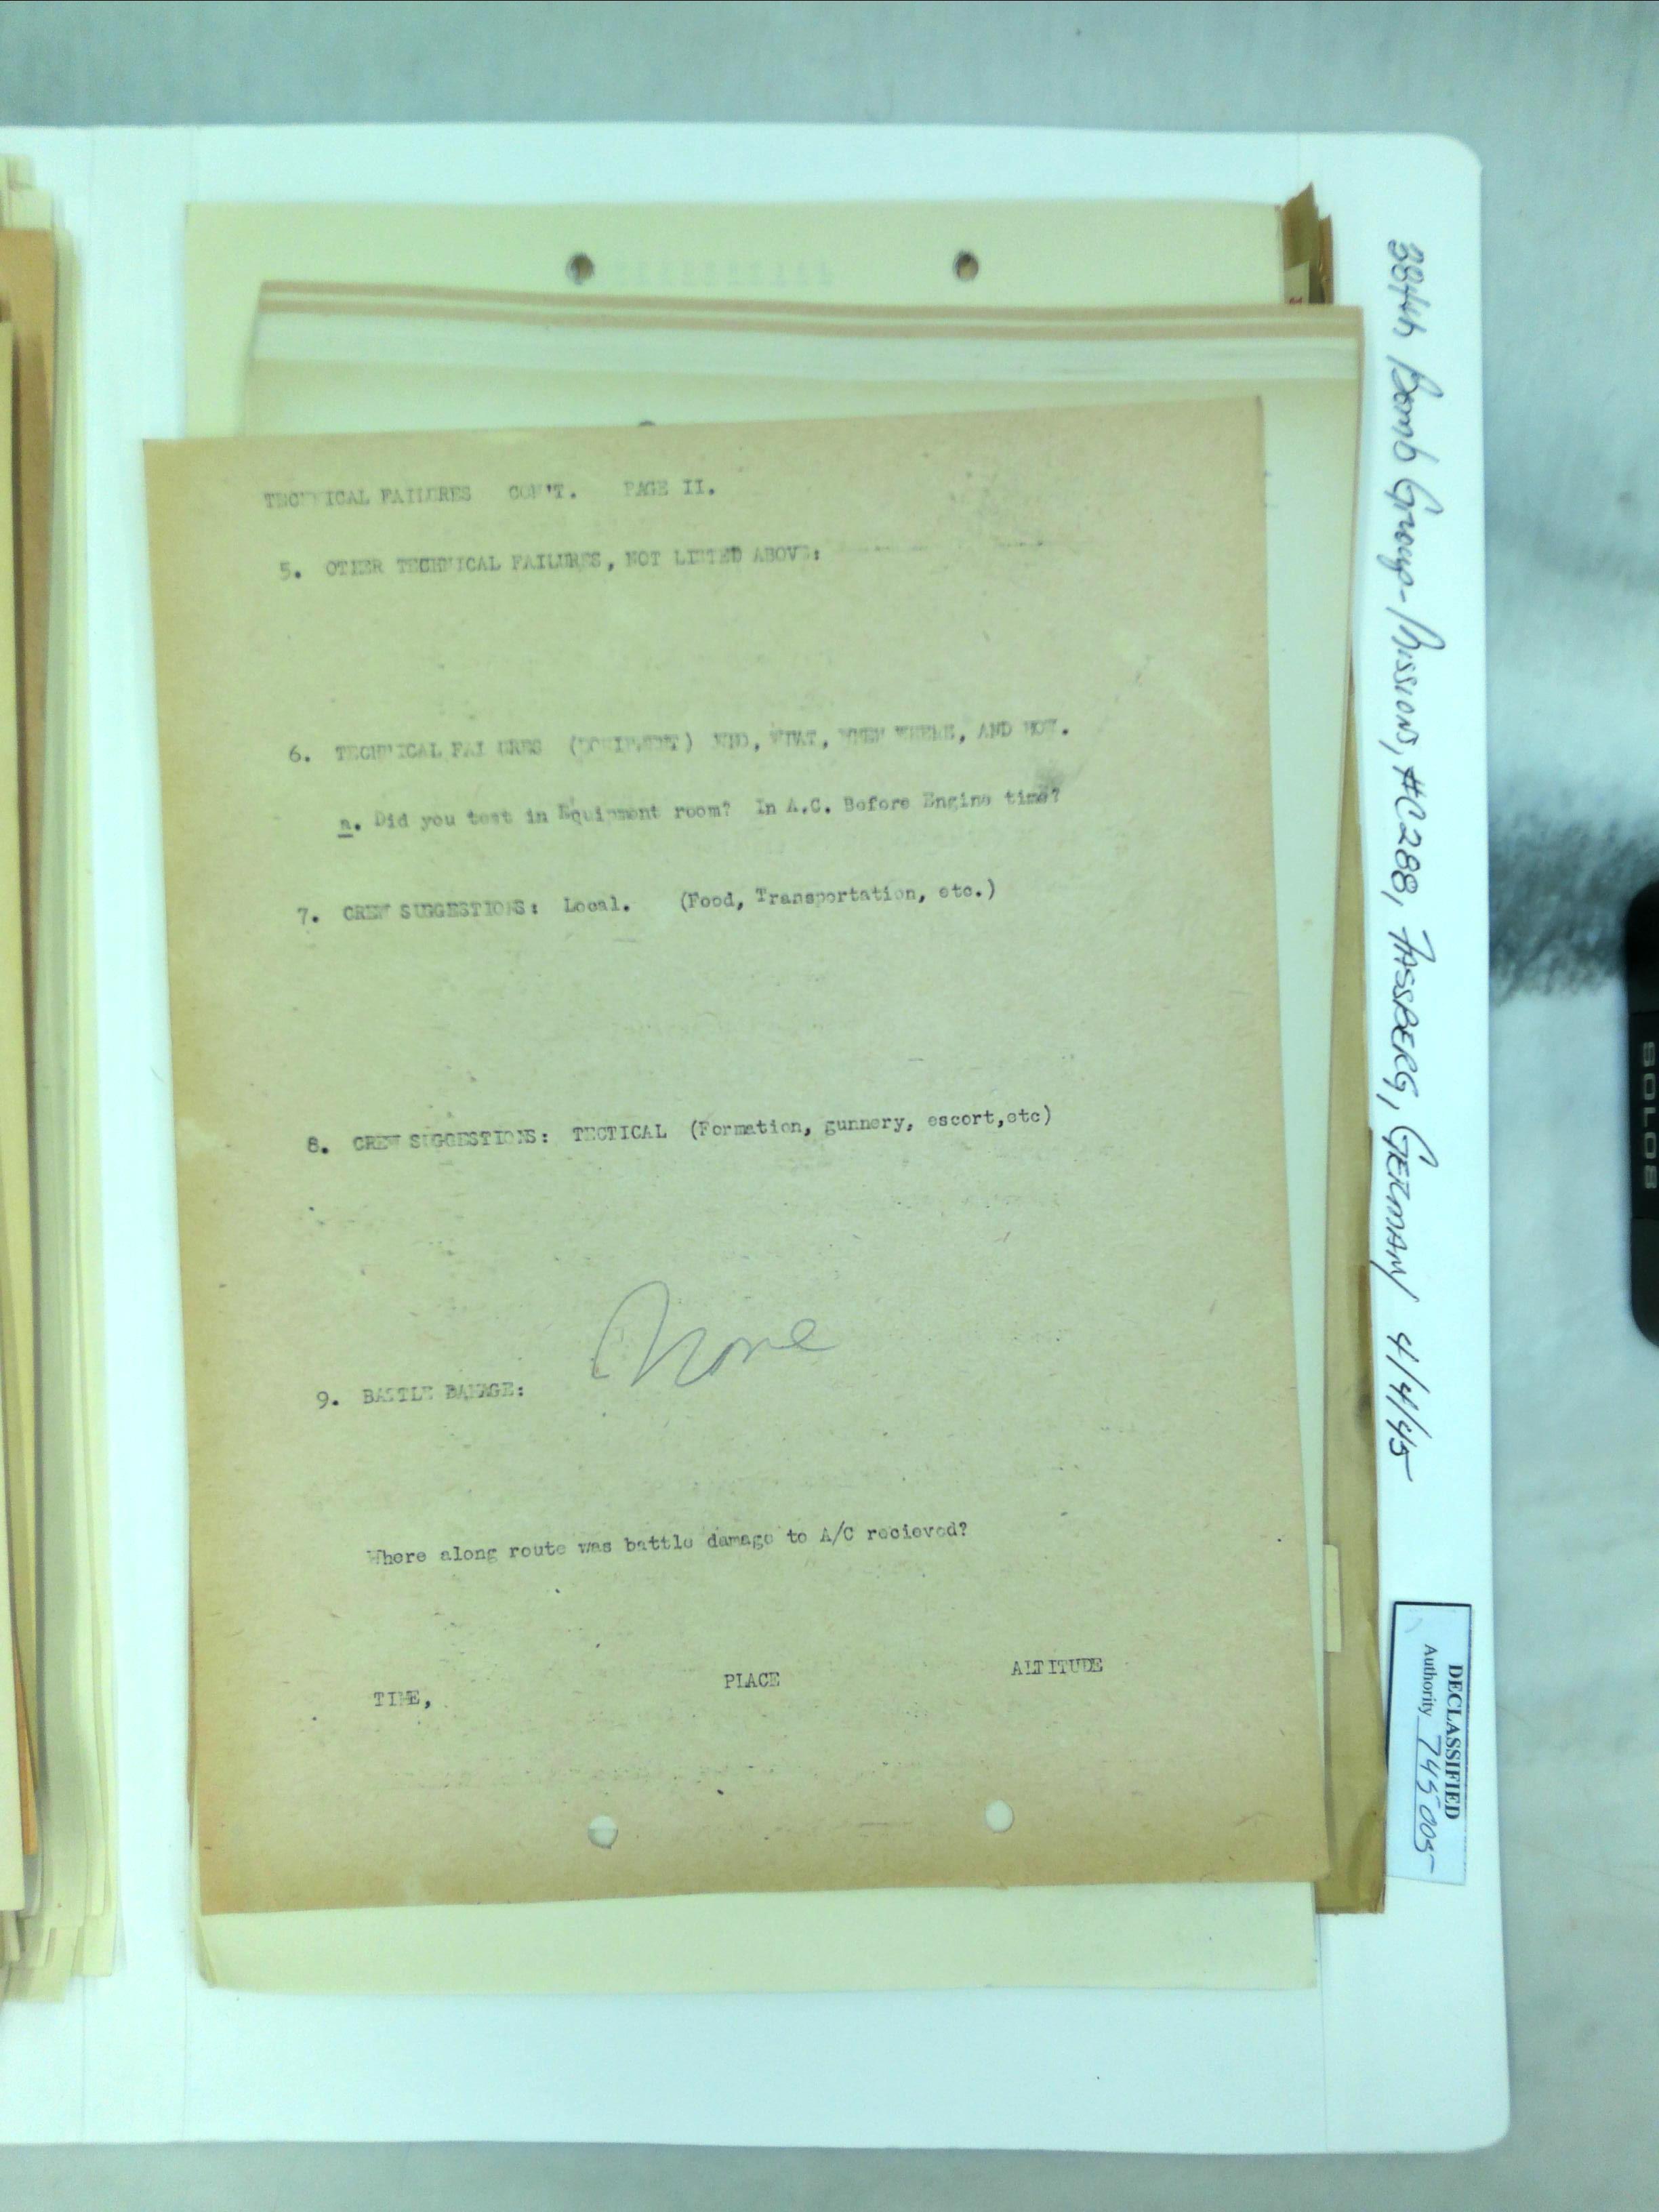 TECHNICAL FAILURES CON'T. PAGE II.
5. OTHER TECHNICAL FAILURES, NOT LISTED ABOVE:
6. TECHNICAL FAILURES (EQUIPMENT) WHO, WHAT, WHEN WHERE, AND HOW.
a. Did you test in Equipment room? In A.C. Before Engine time?
7. CREW SUGGESTIONS: Local. (Food, Transportation, etc.)
8. CREW SUGGESTIONS: TECTICAL (Formation, gunnery, escort,etc)
None
9. BATTLE DAMAGE:
Where along route was battle damage to A/C recieved?
TIME, PLACE ALTITUDE
384th Bomb Group-Mission, #C288, FASSBERG, GERMANY 4/4/45
DECLASSIFIED
Authority 745005
SOLOS